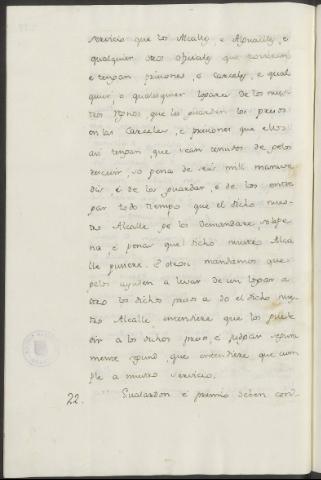 servicio que los Alcalles, e Alguaciles, e
qualquier otro oficiales que tovieren
e tengan prisiones, e carceles, e qual
quier, o qualesquier logares de los nues
tros regnos que les guarden los presos
en las carceles, e prisiones que ellos
asi tengan, que sean tenudos de gelos
rescevir, so pena de seis mill marave
dis, e de los guardar, e de los entre
gar todo tiempo que el dicho nues
tro Alcalle ge los demandare, so la pe
na, e penas quel dicho nuestro Alca
lle pusiere. E otrosi mandamos que
gelos ayuden a levar de un logar a
otro los dichos presos a do el dicho nues
tro Alcalle entendiere que los puede
dir a los dichos presos, e judgar segura
mente segund, que entendiere que cum
ple a nuestro servicio.
22. Gualardon e premio deben cons-